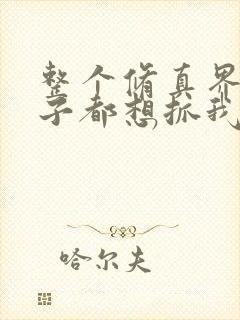 整个脩真界
子都想抓我
哈尔夫